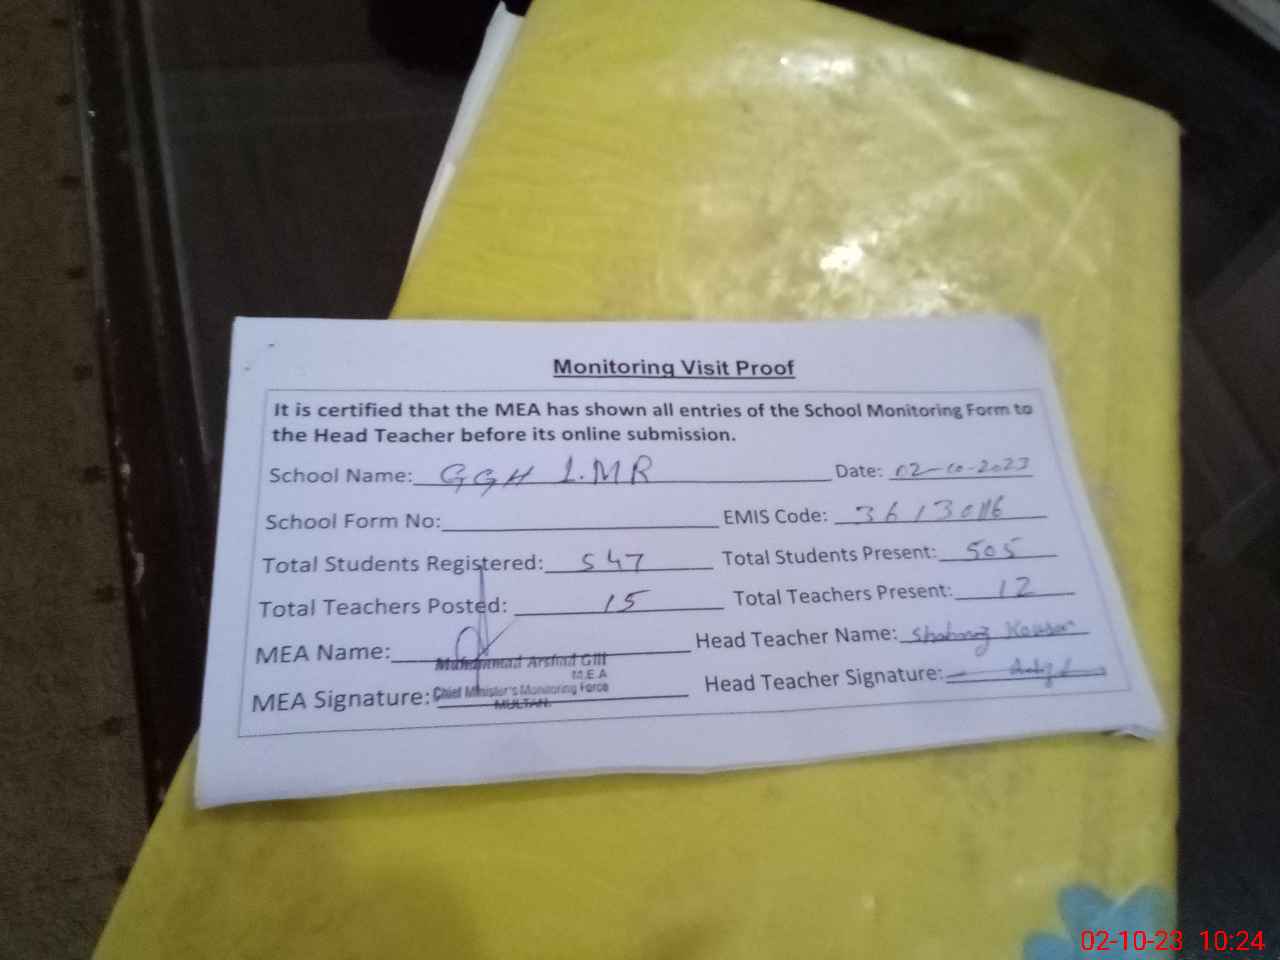 Monitoring Visit Proof
It is certified that the MEA has shown all entries of the School Monitoring Form to
the Head Teacher before its online submission.
School Name: GGH L.MR Date: 02-10-2023
School Form No: EMIS Code: 36130116
Total Students Registered: 547 Total Students Present: 505
Total Teachers Posted: 15 Total Teachers Present: 12
MEA Name: Head Teacher Name: Shahnaz Kousar
Muhammad Arshad Gill
M.E.A
MEA Signature: Chief Minister's Monitoring Force Head Teacher Signature:
MULTAN.
02-10-23 10:24